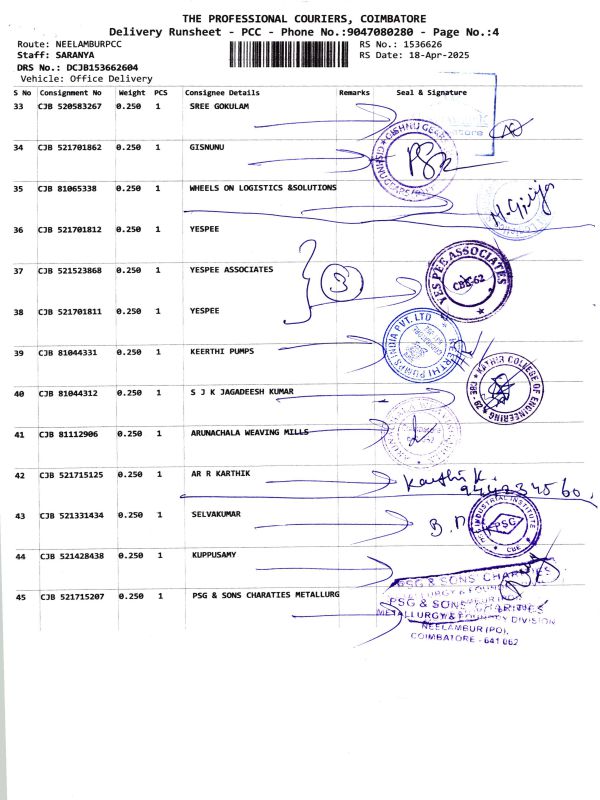 THE PROFESSIONAL COURIERS, COIMBATORE
Delivery Runsheet - PCC - Phone No.:9047080280 - Page No.:4
Route: NEELAMBURPCC
RS No.: 1536626
Staff: SARANYA
RS Date: 18-Apr-2025
DRS No.: DCJB153662604
Vehicle: Office Delivery
S No Consignment No Weight PCS Consignee Details Remarks Seal & Signature
33 CJB 520583267 0.250 1 SREE GOKULAM
34 CJB 521701862 0.250 1 GISNUNU
35 CJB 81065338 0.250 1 WHEELS ON LOGISTICS &SOLUTIONS
M. Girija
36 CJB 521701812 0.250 1 YESPEE
37 CJB 521523868 0.250 1 YESPEE ASSOCIATES
3
YES PEE ASSOCIATES
CBE-62
38 CJB 521701811 0.250 1 YESPEE
39 CJB 81044331 0.250 1 KEERTHI PUMPS
KEERTHI PUMPS INDIA PVT. LTD
40 CJB 81044312 0.250 1 S J K JAGADEESH KUMAR
KATHIR COLLEGE OF ENGINEERING
41 CJB 81112906 0.250 1 ARUNACHALA WEAVING MILLS
42 CJB 521715125 0.250 1 AR R KARTHIK
Karthi K.
43 CJB 521331434 0.250 1 SELVAKUMAR
INDUSTRIAL INSTITUTE
PSG
CBE
44 CJB 521428438 0.250 1 KUPPUSAMY
PSG & SONS' CHARITIES
45 CJB 521715207 0.250 1 PSG & SONS CHARATIES METALLURG
PSG & SONS' CHARITIES
METALLURGY & FOUNDRY DIVISION
NEELAMBUR (PO),
COIMBATORE - 641 062